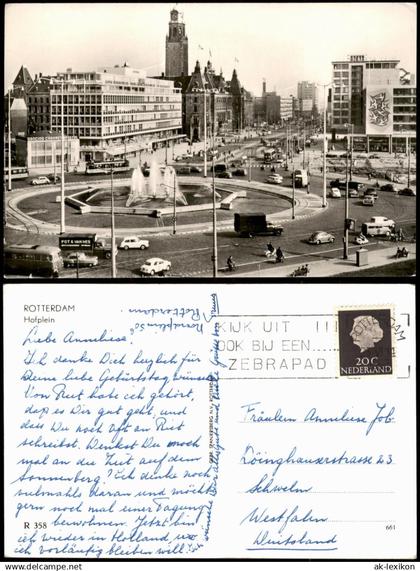 ROTTERDAM
Hofplein
Liebe Anneliese!
Ich danke Dich herzlich für
Deine liebe Geburtstagswünsche
Von Rut habe ich gehört,
dass es Dir gut geht, und
dass Du noch oft an Rut
schreibst. Denkst Du noch
mal an die Zeit auf dem
Sonnenberg? Ich denke noch
daran und möchte
gern noch mal einer Tagung
bewohnen. Jetzt bin
ich wieder in Holland, wo
ich vorläufig bleiben will.
R 358
Rotterdam.
KIJK UIT
OOK BIJ EEN
ZEBRAPAD
20C
NEDERLAND
Fräulein Anneliese Job
Döinghauserstrasse 23
Schwelm
Westfalen
Duitsland
661
ak-lexikon